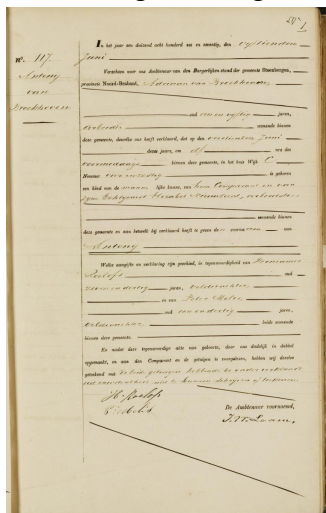 No. 117.
Antony
van
Broekhoven
In het jaar een duizend acht honderd zes en zeventig, den vijftienden
Juni
Verscheen voor ons Ambtenaar van den Burgerlijken stand der gemeente Steenbergen,
provincie Noord-Braband, Adrianus van Broekhoven
oud een en vijftig jaren,
arbeider wonende binnen
deze gemeente, dewelke ons heeft verklaard, dat op den veertienden Juni
dezes jaars, en elf ure des
voormiddags binnen deze gemeente, in het huis Wijk C
Nummer is geboren
een kind van de mannelijke kunne, van hem Comparant en van
zijne Echtgenoot Elizabet
wonende binnen
deze gemeente en aan hetwelk hij verklaard heeft te geven den voornaam van
Antony
Welke aangifte en verklaring zijn geschied, in tegenwoordigheid van Hermanus
Roelofs oud
zeven en dertig jaren, veldwachter
en van Pieter
oud en dertig jaren,
veldwachter beide wonende
binnen deze gemeente
En nadat deze tegenwoordige akte van geboorte, door ons dadelijk in dubbel
opgemaakt, en aan den Comparant en de getuigen is voorgelezen, hebben wij dezelve
geteekend met beide getuigen hebbende de ander verklaard
niet te kunnen schrijven of teekenen
H. Roelofs
De Ambtenaar voornoemd,